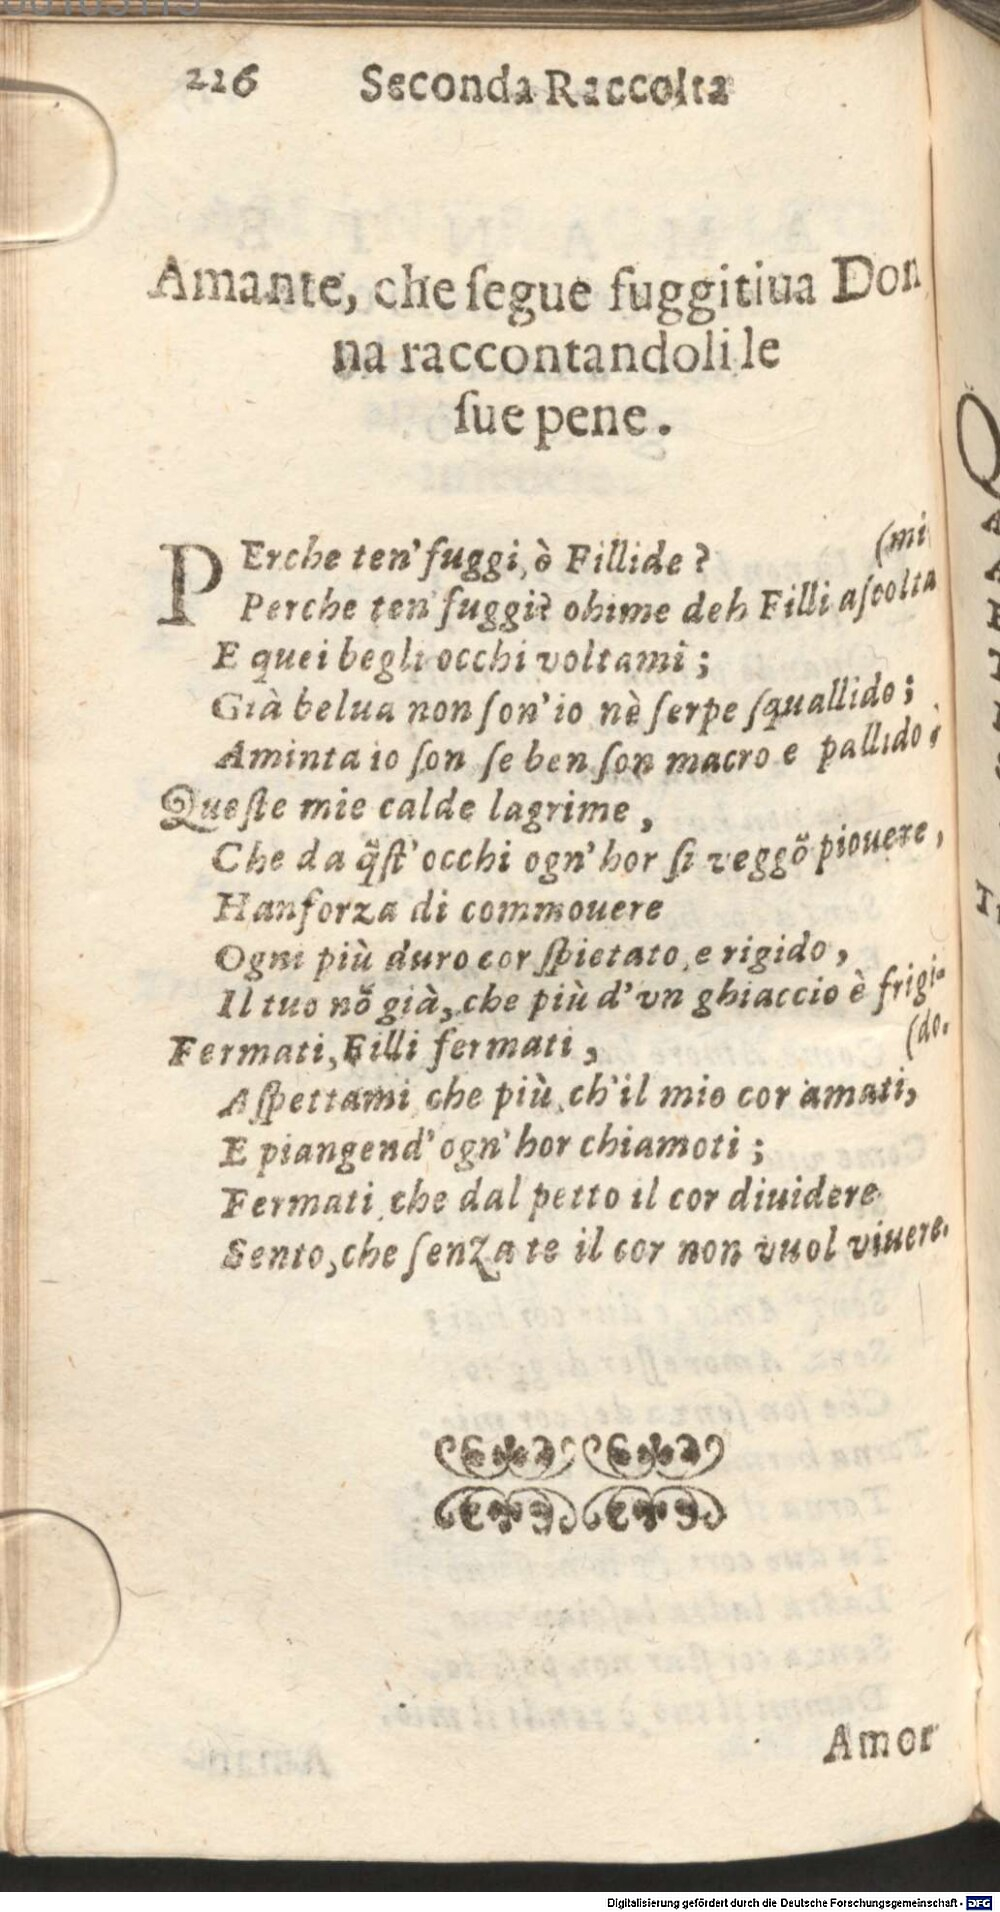 226 Seconda Raccolta
Amante, che ſegue fuggitiua Don
na raccontandoli le
ſue pene.
PErche ten' fuggi, ò Fillide? (mi
Perche ten' fuggi? ohime deh Filli aſcolta
E quei begli occhi voltami;
Già belua non ſon' io nè ſerpe ſquallido;
Aminta io ſon ſe ben ſon macro e pallido;
Queſte mie calde lagrime,
Che da q̃ſt' occhi ogn' hor ſi veggõ piouere,
Hanforza di commouere
Ogni più duro cor ſpietato, e rigido,
Il tuo nõ già, che più d' vn ghiaccio è frigi-
Fermati, Filli fermati, (do.
Aſpettami che più, ch' il mio cor amati,
E piangend' ogn' hor chiamoti;
Fermati che dal petto il cor diuidere
Sento, che ſenza te il cor non vuol viuere.
Amor
Digitalisierung gefördert durch die Deutsche Forschungsgemeinschaft - DFG